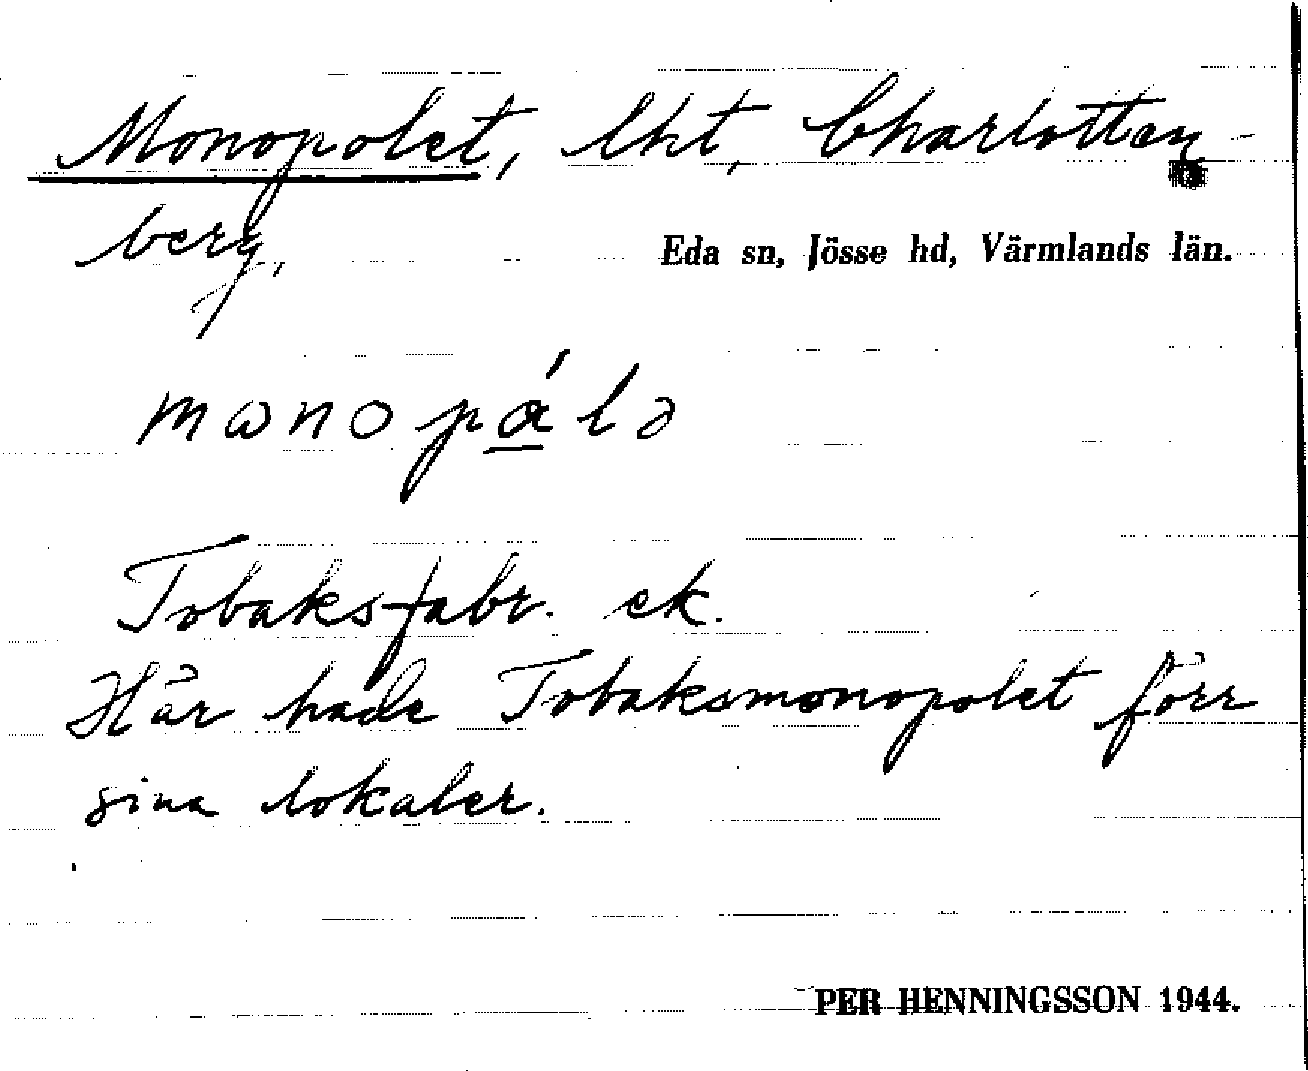 Monopolet, lht, Charlotten-
berg,
Eda sn, Jösse hd, Värmlands län.
Tobaksfabr. ek.
Här hade Tobaksmonopolet förr
sina lokaler.
PER HENNINGSSON 1944.